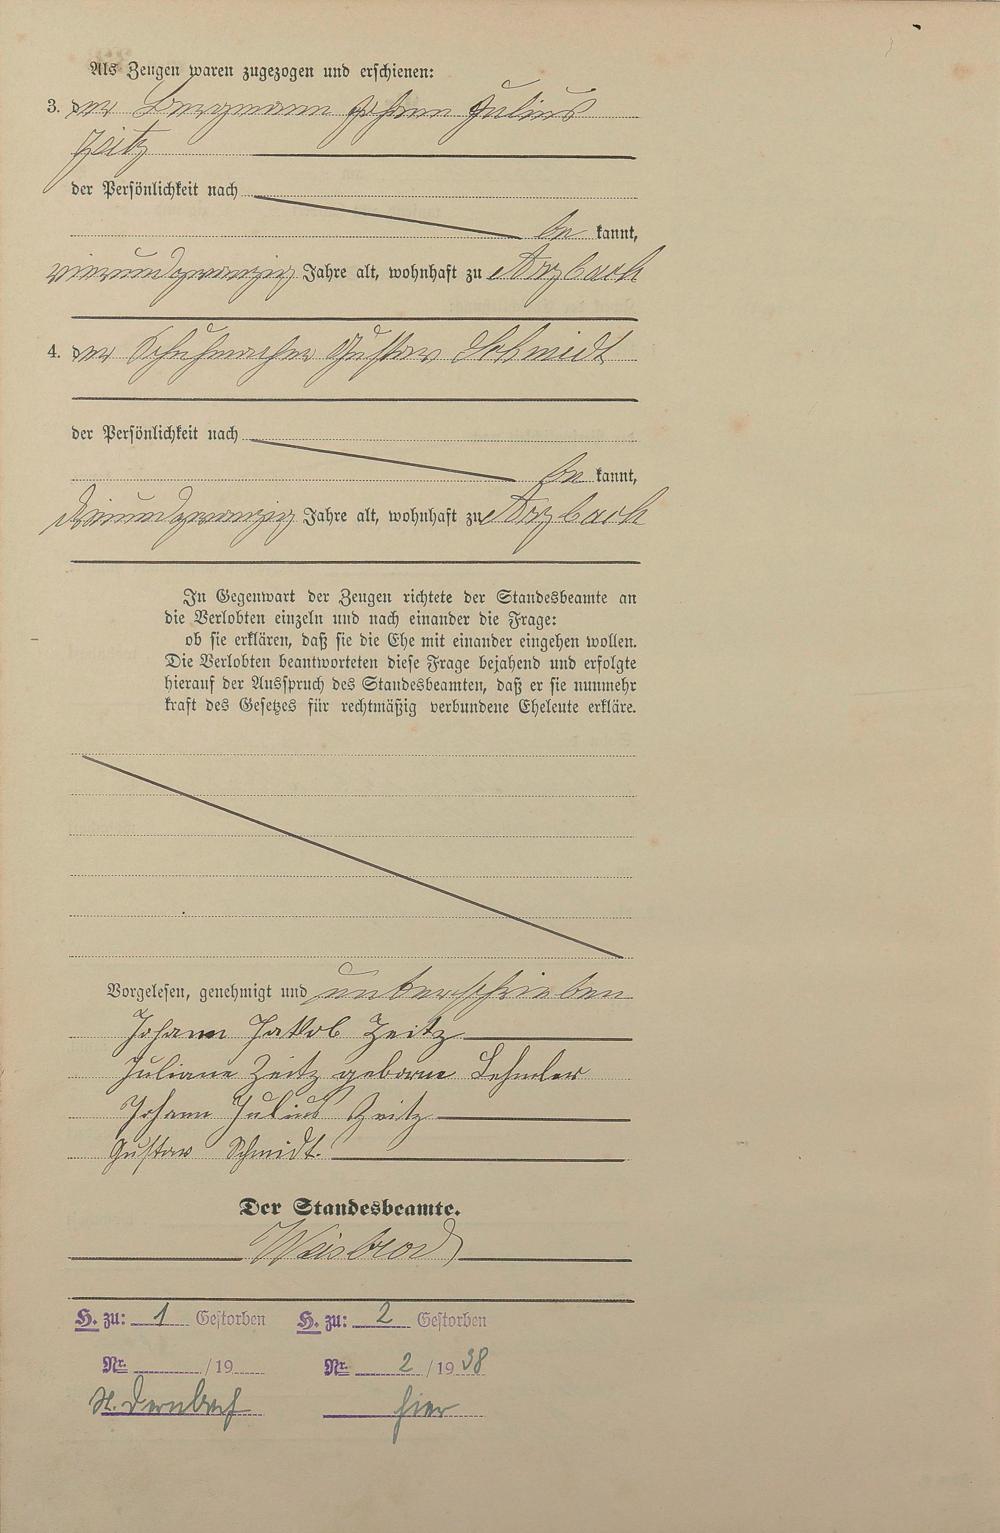 Als Zeugen waren zugezogen und erschienen:
3. der Bergmann Johann Julius
Zeitz
der Persönlichkeit nach
be kannt,
vierundzwanzig Jahre alt, wohnhaft zu Arzbach
4. der Schuhmacher Gustav Schmidt
der Persönlichkeit nach
be kannt,
dreiundzwanzig Jahre alt, wohnhaft zu Arzbach
In Gegenwart der Zeugen richtete der Standesbeamte an
die Verlobten einzeln und nach einander die Frage:
ob sie erklären, daß sie die Ehe mit einander eingehen wollen.
Die Verlobten beantworteten diese Frage bejahend und erfolgte
hierauf der Ausspruch des Standesbeamten, daß er sie nunmehr
kraft des Gesetzes für rechtmäßig verbundene Eheleute erkläre.
Vorgelesen, genehmigt und unterschrieben
Johann Jakob Zeitz
Juliane Zeitz geborne Lehmler
Johann Julius Zeitz
Gustav Schmidt.
Der Standesbeamte.
Weisbrod
H. zu: 1 Gestorben H. zu: 2 Gestorben
Nr. /19 Nr. 2 /19 38
St. Dernbach hier